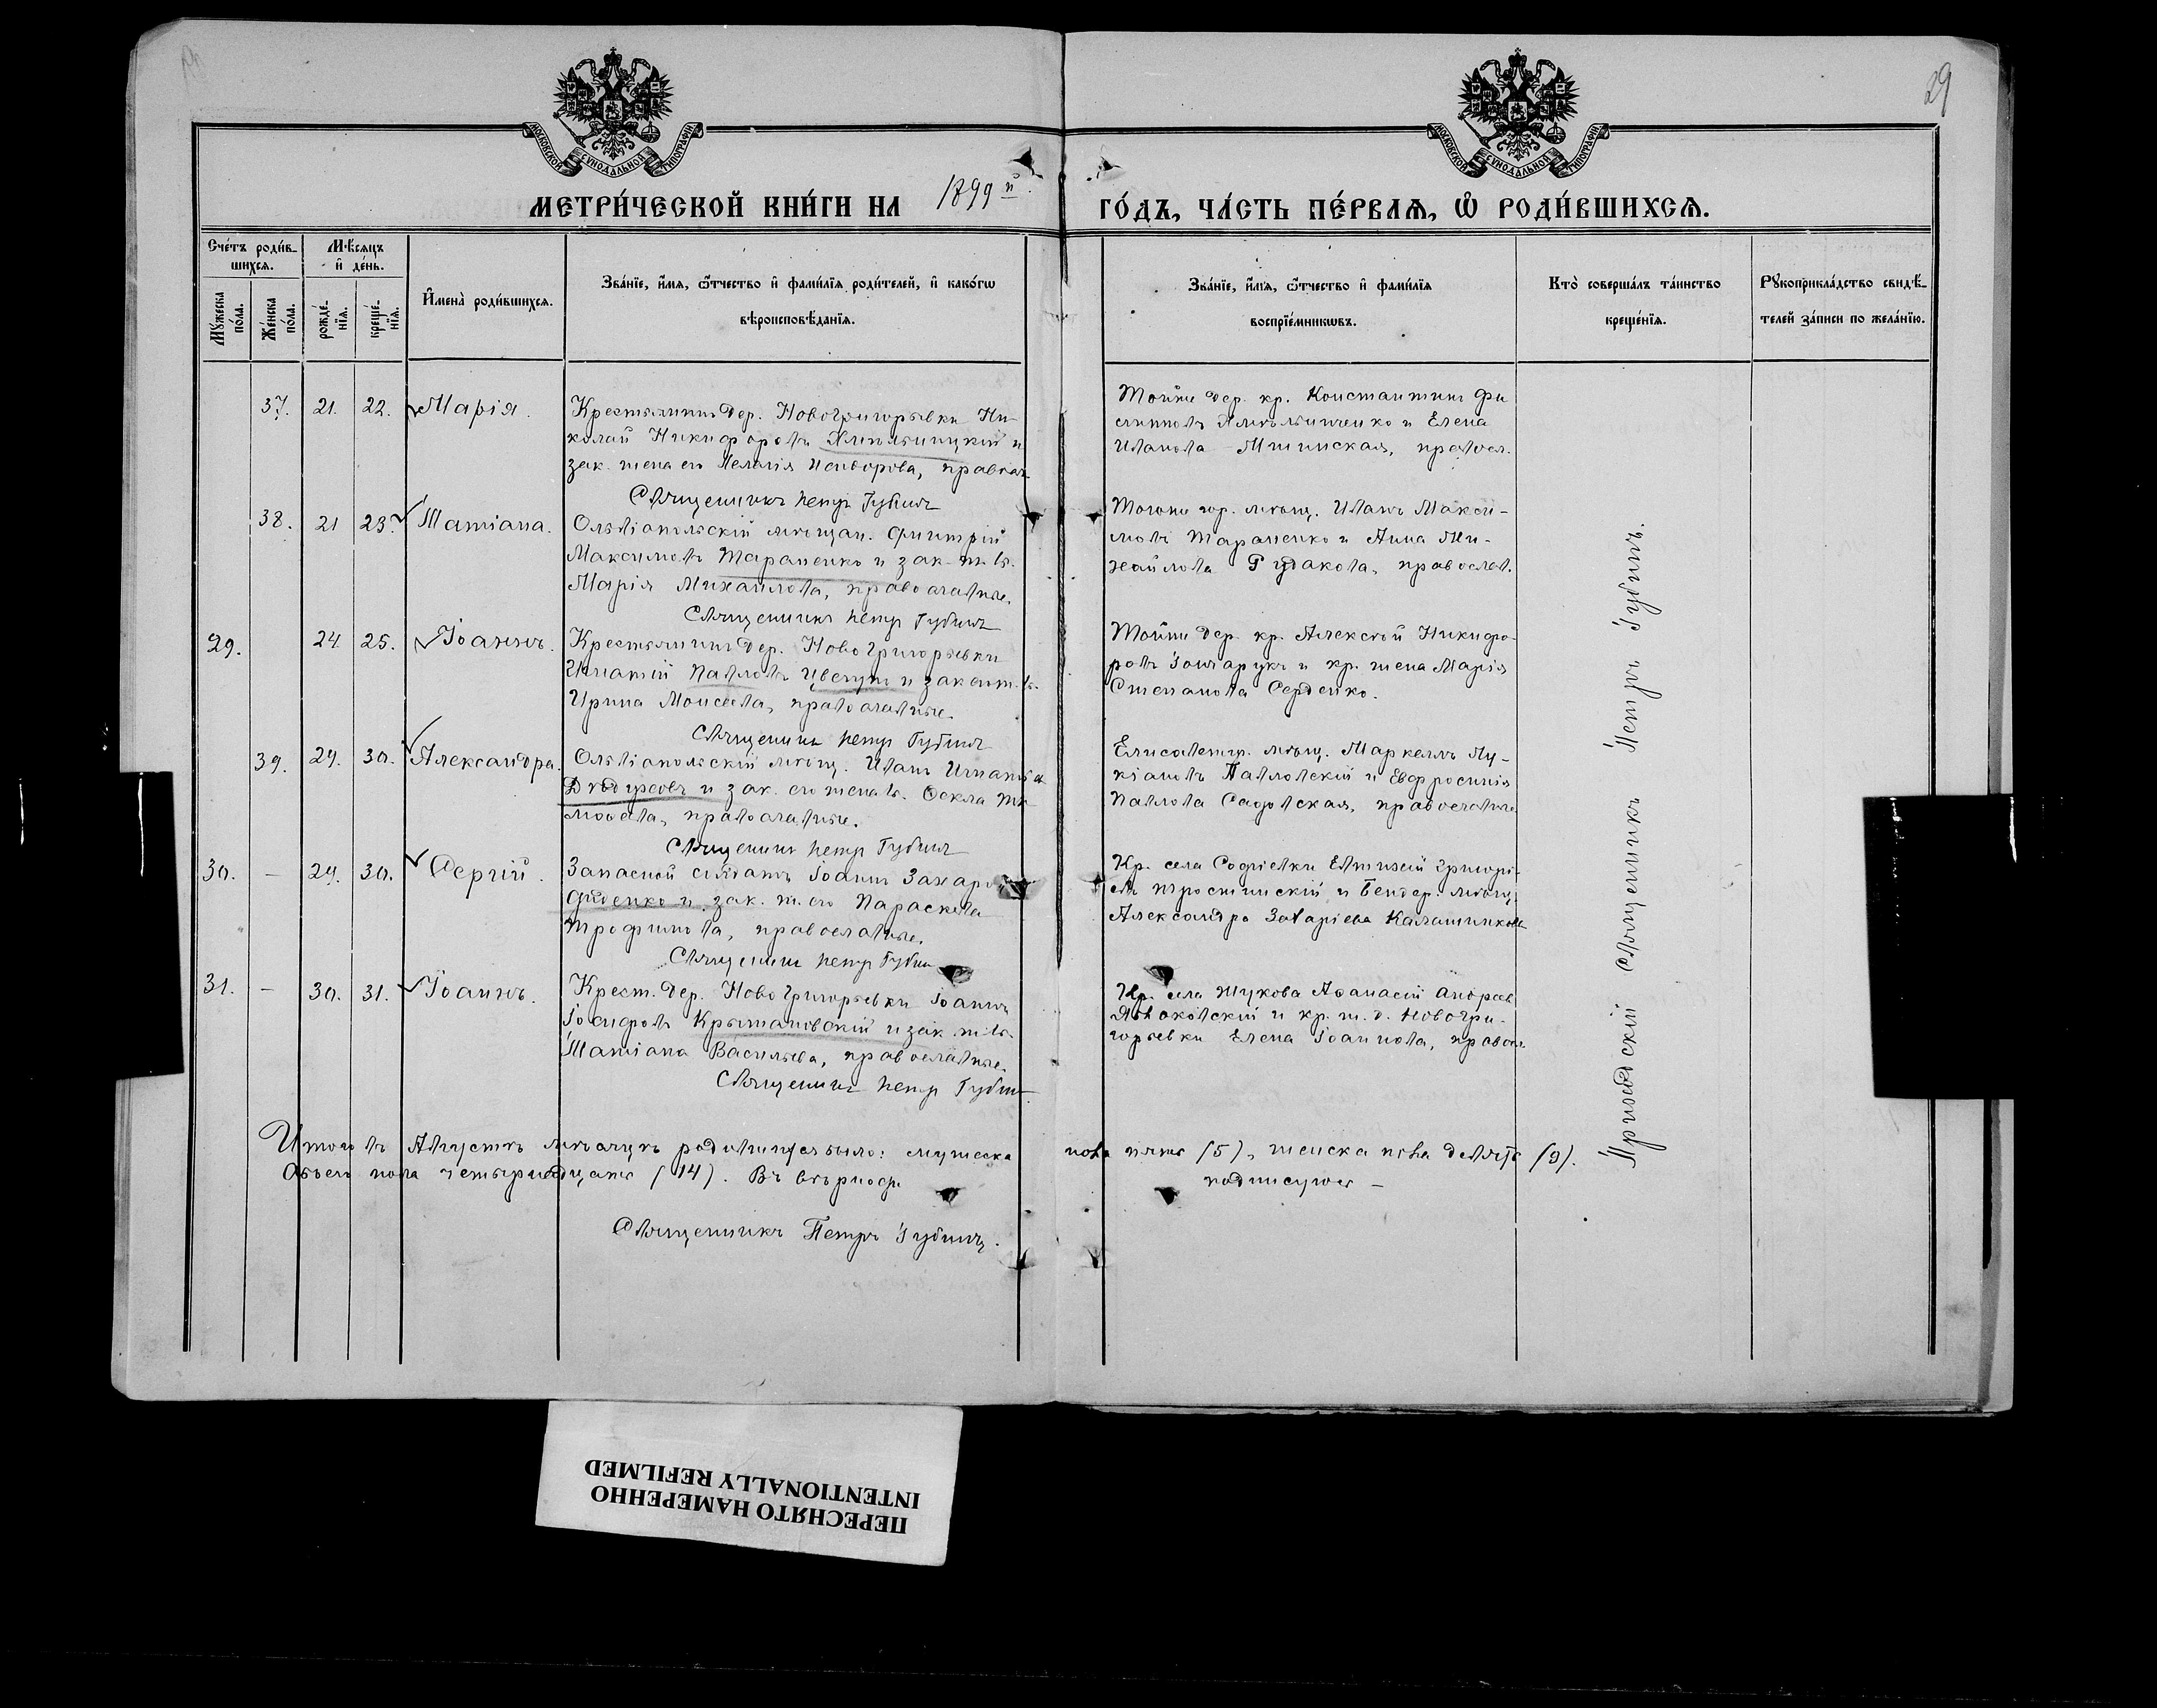 29
МОСКОВСКОЙ СУНОДАЛЬНОЙ ТИПОГРАФІИ
МОСКОВСКОЙ СУНОДАЛЬНОЙ ТИПОГРАФІИ
МЕТРИ́ЧЕСКОЙ КНИ́ГИ НА 1899й
ГО́ДЪ, ЧА́СТЬ ПЕ́РВАѦ, Ѽ РОДИ́ВШИХСѦ.
Сче́тъ роди́в-
шихсѧ.
Мꙋ́жеска по́ла.
Же́нска по́ла.
Мѣ́сяцъ
и҆ де́нь.
рожде́-
нїѧ.
креще́-
нїѧ.
И҆мена̀ роди́вшихсѧ.
Зва́нїе, и҆́мѧ, ѻ҆́тчество и҆ фами́лїѧ роди́телей, и҆ како́гѡ
вѣроисповѣ́данїѧ.
Зва́нїе, и҆́мѧ, ѻ҆́тчество и҆ фами́лїѧ
воспрїе́мникѡвъ.
Кто̀ соверша́лъ та́инство
креще́нїѧ.
Рꙋкоприкла́дство свидѣ́-
телей за́писи по жела́нїю.
37. 21. 22. Марія.
Крестьянинъ дер. Новогригорьевки Ни-
колай Никифоровъ и
зак. жена его Пелагія Исидорова, правосл.
Священникъ Петръ Губинъ
Тойже дер. кр. Константинъ Фи
и Елена
Иванова правосл.
38. 21 23. Татіана.
Ольвіопольскій мѣщан. Димитрій
Максимовъ Тараненко и зак. ж. ѣ.
Марія Михайлова, православные.
Священникъ Петръ Губинъ
Тогоже гор. мѣщ. Иванъ Макси-
мовъ Тараненко и Анна Ми-
хайлова Рудакова, православ.
29. 24. 25. Іоаннъ.
Крестьянинъ дер. Новогригорьевки
Игнатій Павловъ и
Ирина Моисеева, православные.
Священникъ Петръ Губинъ
Тойже дер. кр. Алексѣй Никифо-
ровъ Гончарукъ и кр. жена Марія
Степанова Серденко.
39. 29. 30. Александра.
Ольвіопольскій мѣщ. Иванъ Игнатіев
и зак. его жена Ѳекла Ти-
моѳеева, православные.
Священникъ Петръ Губинъ
Елисаветгр. мѣщ. Маркеллъ Лу-
кіановъ Павловскій и Евфросинія
Павлова Садовская, православные
30. – 29. 30. Сергій.
Запасной солдатъ Іоаннъ Захаро
Диденко и зак. ж. его Параскева
Трофимова, православные.
Священникъ Петръ Губин
Кр. села Софіевки Евтихій Григорі-
евъ Тростинскій и Бендер. мѣщ.
Александра Захаріева Калашникова
31. – 30. 31. Іоаннъ.
Крест. дер. Новогригорьевки Іоаннъ
Іосифовъ Крыжановскій и зак. ж. ѣ.
Татіана Васильева, православные.
Священникъ Петръ Губин
Кр. села Жукова Аѳанасій Андреев
и кр. ж. д. Новогри-
горьевки Елена Іоаннова, правосл.
Приходскій священникъ Петръ Губинъ.
Итого въ Августѣ мѣсяцѣ родившихся было: мужеска пола пять (5), женска пола девять (9).
Обоего пола четырнадцать (14). Въ вѣрности подписуюсь –
Священникъ Петръ Губинъ.
ПЕРЕСНЯТО НАМЕРЕННО
INTENTIONALLY REFILMED